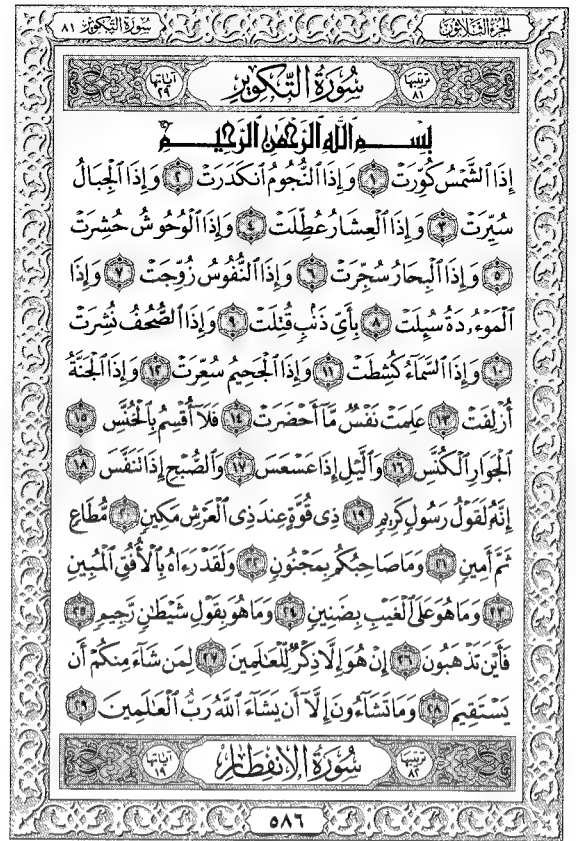 سورة التكوير ٨١ الجزء الثلاثون
ترتيبها ٨١ سورة التكوير آياتها ٢٩
بسم الله الرحمن الرحيم
إِذَا ٱلشَّمْسُ كُوِّرَتْ ١ وَإِذَا ٱلنُّجُومُ ٱنكَدَرَتْ ٢ وَإِذَا ٱلْجِبَالُ
سُيِّرَتْ ٣ وَإِذَا ٱلْعِشَارُ عُطِّلَتْ ٤ وَإِذَا ٱلْوُحُوشُ حُشِرَتْ
٥ وَإِذَا ٱلْبِحَارُ سُجِّرَتْ ٦ وَإِذَا ٱلنُّفُوسُ زُوِّجَتْ ٧ وَإِذَا
ٱلْمَوْءُۥدَةُ سُئِلَتْ ٨ بِأَىِّ ذَنۢبٍ قُتِلَتْ ٩ وَإِذَا ٱلصُّحُفُ نُشِرَتْ
١٠ وَإِذَا ٱلسَّمَآءُ كُشِطَتْ ١١ وَإِذَا ٱلْجَحِيمُ سُعِّرَتْ ١٢ وَإِذَا ٱلْجَنَّةُ
أُزْلِفَتْ ١٣ عَلِمَتْ نَفْسٌ مَّآ أَحْضَرَتْ ١٤ فَلَآ أُقْسِمُ بِٱلْخُنَّسِ ١٥
ٱلْجَوَارِ ٱلْكُنَّسِ ١٦ وَٱلَّيْلِ إِذَا عَسْعَسَ ١٧ وَٱلصُّبْحِ إِذَا تَنَفَّسَ ١٨
إِنَّهُۥ لَقَوْلُ رَسُولٍ كَرِيمٍ ١٩ ذِى قُوَّةٍ عِندَ ذِى ٱلْعَرْشِ مَكِينٍ ٢٠ مُّطَاعٍ
ثَمَّ أَمِينٍ ٢١ وَمَا صَاحِبُكُم بِمَجْنُونٍ ٢٢ وَلَقَدْ رَءَاهُ بِٱلْأُفُقِ ٱلْمُبِينِ
٢٣ وَمَا هُوَ عَلَى ٱلْغَيْبِ بِضَنِينٍ ٢٤ وَمَا هُوَ بِقَوْلِ شَيْطَٰنٍ رَّجِيمٍ ٢٥
فَأَيْنَ تَذْهَبُونَ ٢٦ إِنْ هُوَ إِلَّا ذِكْرٌ لِّلْعَٰلَمِينَ ٢٧ لِمَن شَآءَ مِنكُمْ أَن
يَسْتَقِيمَ ٢٨ وَمَا تَشَآءُونَ إِلَّآ أَن يَشَآءَ ٱللَّهُ رَبُّ ٱلْعَٰلَمِينَ ٢٩
ترتيبها ٨٢ سورة الانفطار آياتها ١٩
٥٨٦